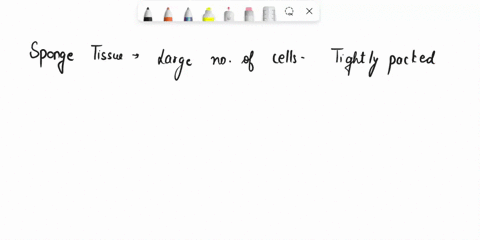 Sponge Tissue → Large no. of cells. Tightly packed